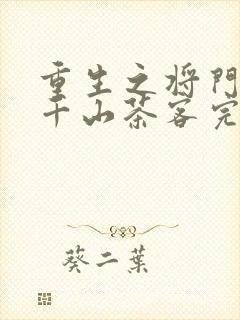 重生之将门
千山茶客完
葵二葉